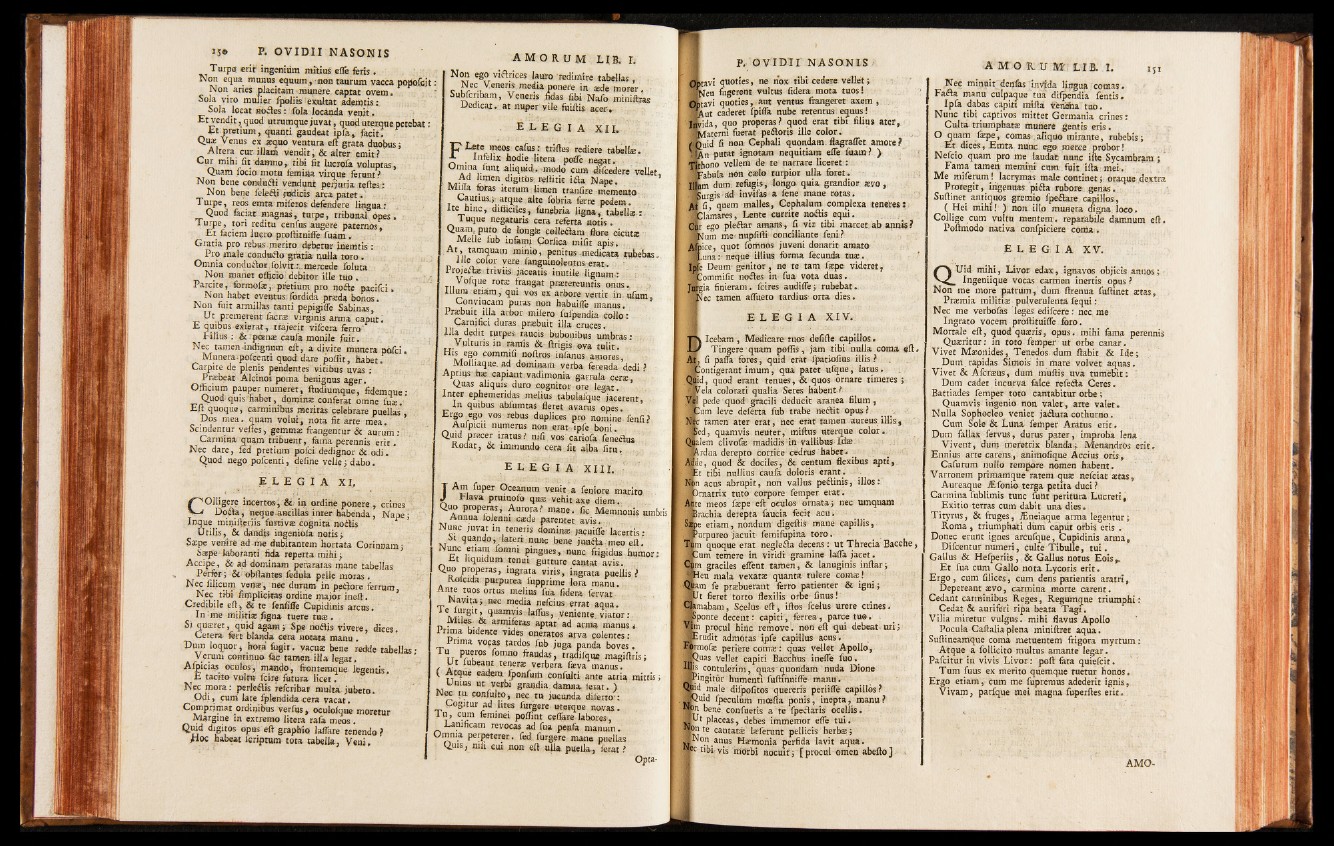 150 P. OVIDII NASONIS
Turpe erit ingenium mitius esse feris.
Non equa munus equum, non taurum vacca poposcit:
Non aries placitam munere captat ovem.
Sola viro mulier spoliis exultat ademtis:
Sola locat noctes: sola locanda venit.
Et vendit, quod utrumque juvat, quod uterque petebat:
Et pretium, quanti gaudeat ipsa, facit.
Quæ Venus ex æquo ventura est grata duobus;
Altera cur illam vendit, & alter emit?
Cur mihi sit damno, tibi sit lucrosa voluptas,
Quam socio motu femina virque ferunt?
Non bene conducti vendunt perjuria testes:
Non bene selecti judicis arca patet.
Turpe, reos emta miseros defendere lingua:
Quod faciat magnas, turpe, tribunal opes.
Turpe, tori reditu census augere paternos,
Et faciem lucro prostituisse suam.
Gratia pro rebus merito debetur inemtis:
Pro male conducto gratia nulla toro.
Omnia conductor solvit: mercede soluta
Non manet officio debitor ille tuo.
Parcite, formosæ, pretium pro nocte pacisci.
Non habet eventus sordida præda bonos.
Non fuit armillas tanti pepigisse Sabinas,
Ut premerent sacræ virginis arma caput.
E quibus exierat, trajecit viscera ferro
Filius: & pœnæ causa monile fuit.
Nec tamen indignum est, a divite munera posci.
Munera poscenti quod dare possit, habet.
Carpite de plenis pendentes vitibus uvas:
Præbeat Alcinoi poma benignus ager.
Officium pauper numeret, studiumque, fidemque:
Quod quis habet, dominæ conferat omne suæ.
Est quoque, carminibus meritas celebrare puellas,
Dos mea. quam volui, nota fit arte mea.
Scindentur vestes, gemmæ frangentur & aurum:
Carmina quam tribuent, fama perennis erit.
Nec dare, sed pretium posci dedignor & odi.
Quod nego poscenti, desine velle; dabo.
ELEGIA XI.
COlligere incertos, & in ordine ponere, crines
Docta, neque ancillas inter habenda, Nape;
Inque ministeriis furtivæ cognita noctis
Utilis, & dandis ingeniosa notis;
Sæpe venire ad me dubitantem hortata Corinnam;
Sæpe laboranti fida reperta mihi;
Accipe, & ad dominam peraratas mane tabellas
Perfer; & obstantes sedula pelle moras.
Nec silicum venæ, nec durum in pectore ferrum,
Nec tibi simplicitas ordine major inest.
Credibile est, & te sensisse Cupidinis arcus.
In me militiæ signa tuere tuæ.
Si quæret, quid agam; Spe noctis vivere, dices.
Cetera fert blanda cera notata manu.
Dum loquor, hora fugit. vacuæ bene redde tabellas:
Verum continuo fac tamen illa legat.
Aspicias oculos, mando, frontemque legentis.
E tacito vultu scire futura licet.
Nec mora: perlectis rescribat multa jubeto.
Odi, cum late splendida cera vacat.
Comprimat ordinibus versus, oculosque moretur
Margine in extremo litera rasa meos.
Quid digitos opus est graphio lassare tenendo?
Hoc habeat scriptum tota tabella, Veni.
AMORUM LIB. I.
Non ego victrices lauro redimire tabellas,
Nec Veneris media ponere in æde morer.
Subscribam, Veneris fidas sibi Naso ministras
Dedicat. at nuper vile fuistis acer.
ELEGIA XII.
FLete meos casus: tristes rediere tabellæ.
Infelix hodie litera posse negat.
Omina sunt aliquid. modo cum discedere vellet,
Ad limen digitos restitit icta Nape.
Missa foras iterum limen transire memento
Cautius; atque alte sobria ferre pedem.
Ite hinc, difficiles, funebria ligna, tabellæ:
Tuque negaturis cera referta notis.
Quam, puto de longæ collectam flore cicutæ
Melle sub infami Corsica misit apis.
At, tamquam minio, penitus medicata rubebas.
Ille color vere sanguinolentus erat.
Projectæ triviis jaceatis inutile lignum:
Vosque rotæ frangat prætereuntis onus.
Illum etiam, qui vos ex arbore vertit in usum,
Convincam puras non habuisse manus.
Præbuit illa arbor misero suspendia collo:
Carnifici duras præbuit illa cruces.
Illa dedit turpes raucis bubonibus umbras:
Vulturis in ramis & strigis ova tulit.
His ego commisi nostros insanus amores,
Molliaque ad dominam verba ferenda dedi?
Aptius hæ capiant vadimonia garrula ceræ,
Quas aliquis duro cognitor ore legat.
Inter ephemeridas melius tabulasque jacerent,
In quibus absumtas fleret avarus opes.
Ergo ego vos rebus duplices pro nomine sensi?
Auspicii numerus non erat ipse boni.
Quid precer iratus? nisi vos cariosa senectus
Rodat, & immundo cera sit alba situ.
ELEGIA XIII.
JAm super Oceanum venit a seniore marito
Flava pruinoso quæ vehit axe diem.
Quo properas, Aurora? mane. sic Memnonis umbris
Annua solenni cæde parentet avis.
Nunc juvat in teneris dominæ jacuisse lacertis:
Si quando, lateri nunc bene juncta meo est.
Nunc etiam somni pingues, nunc frigidus humor:
Et liquidum tenui gutture cantat avis.
Quo properas, ingrata viris, ingrata puellis?
Roscida purpurea supprime lora manu.
Ante tuos ortus melius sua sidera servat
Navita; nec media nescius errat aqua.
Te surgit, quamvis lassus, veniente, viator:
Miles & armiferas aptat ad arma manus.
Prima bidente vides oneratos arva colentes:
Prima vocas tardos sub juga panda boves.
Tu pueros somno fraudas, tradisque magistris;
Ut subeant teneræ verbera sæva manus.
( Atque eadem sponsum consulti ante atria mittis;
Unius ut verbi grandia damna ferat. )
Nec tu consulto, nec tu jucunda diserto:
Cogitur ad lites surgere uterque novas.
Tu, cum feminei possint cessare labores,
Lanificam revocas ad sua pensa manum.
Omnia perpeterer. sed surgere mane puellas
Quis, nisi cui non est ulla puella, ferat?
Opta-
P. OVIDII NASONIS
Optavi quoties, ne nox tibi cedere vellet;
Neu fugerent vultus sidera mota tuos!
Optavi quoties, aut ventus frangeret axem,
Aut caderet spissa nube retentus equus!
Invida, quo properas? quod erat tibi filius ater,
Materni fuerat pectoris ille color.
( Quid si non Cephali quondam flagrasset amore?
An putat ignotam nequitiam esse suam? )
Tithono vellem de te narrare liceret:
Fabula non cælo turpior ulla foret.
Illum dum refugis, longo quia grandior ævo,
Surgis ad invisas a sene mane rotas.
At si, quem malles, Cephalum complexa teneres:
Clamares, Lente currite noctis equi.
Cur ego plectar amans, si vir tibi marcet ab annis?
Num me nupsisti conciliante seni?
Aspice, quot somnos juveni donarit amato
Luna: neque illius forma secunda tuæ.
Ipse Deum genitor, ne te tam sæpe videret,
Commisit noctes in sua vota duas.
Jurgia finieram. scires audisse; rubebat.
Nec tamen assueto tardius orta dies.
ELEGIA XIV.
DIcebam, Medicare tuos desiste capillos.
Tingere quam possis, jam tibi nulla coma est.
At, si passa fores, quid erat spatiosius illis?
Contigerant imum, qua patet usque, latus.
Quid, quod erant tenues, & quos ornare timeres;
Vela colorati qualia Seres habent?
Vel pede quod gracili deducit aranea filum,
Cum leve deserta sub trabe nectit opus?
Nec tamen ater erat, nec erat tamen aureus illis,
Sed, quamvis neuter, mistus uterque color.
Qualem clivosæ madidis in vallibus Idæ
Ardua derepto cortice cedrus habet.
Adde, quod & dociles, & centum flexibus apti,
Et tibi nullius causa doloris erant.
Non acus abrupit, non vallus pectinis, illos:
Ornatrix tuto corpore semper erat.
Ante meos sæpe est oculos ornata; nec umquam
Brachia derepta saucia fecit acu.
Sæpe etiam, nondum digestis mane capillis,
Purpureo jacuit semisupina toro.
Tum quoque erat neglecta decens: ut Threcia Bacche,
Cum temere in viridi gramine lassa jacet.
Cum graciles essent tamen, & lanuginis instar;
Heu mala vexatæ quanta tulere comæ!
Quam se præbuerant ferro patienter & igni;
Ut fieret torto flexilis orbe sinus!
Clamabam, Scelus est, istos scelus urere crines.
Sponte decent: capiti, ferrea, parce tuo.
Vim procul hinc remove. non est qui debeat uri;
Erudit admotas ipse capillus acus.
Formosæ periere comæ: quas vellet Apollo,
Quas vellet capiti Bacchus inesse suo.
Illis contulerim, quas quondam nuda Dione
Pingitur humenti sustinuisse manu.
Quid male dispositos quereris periisse capillos?
Quid speculum mœsta ponis, inepta, manu?
Non bene consuetis a te spectaris ocellis.
Ut placeas, debes immemor esse tui.
Non te cantatæ læserunt pellicis herbæ;
Non anus Hæmonia perfida lavit aqua.
Nec tibi vis morbi nocuit; [procul omen abesto]
AMORUM LIB. I. 151
Nec minuit densas invida lingua comas.
Facta manu culpaque tua dispendia sentis.
Ipsa dabas capiti mista venena tuo.
Nunc tibi captivos mittet Germania crines:
Culta triumphatæ munere gentis eris.
O quam sæpe, comas aliquo mirante, rubebis;
Et dices, Emta nunc ego merce probor!
Nescio quam pro me laudat nunc iste Sycambram;
Fama tamen memini cum fuit ista mei.
Me miserum! lacrymas male continet; oraque dextra
Protegit, ingenuas picta rubore genas.
Sustinet antiquos gremio spectare capillos,
( Hei mihi! ) non illo munera digna loco.
Collige cum vultu mentem. reparabile damnum est.
Postmodo nativa conspiciere coma.
ELEGIA XV.
QUid mihi, Livor edax, ignavos objicis annos;
Ingeniique vocas carmen inertis opus?
Non me more patrum, dum strenua sustinet ætas,
Præmia militiæ pulverulenta sequi:
Nec me verbosas leges ediscere: nec me
Ingrato vocem prostituisse foro.
Mortale est, quod quæris, opus. mihi fama perennis
Quæritur: in toto semper ut orbe canar.
Vivet Mæonides, Tenedos dum stabit & Ide;
Dum rapidas Simois in mare volvet aquas.
Vivet & Ascræus, dum mustis uva tumebit:
Dum cadet incurva falce resecta Ceres.
Battiades semper toto cantabitur orbe;
Quamvis ingenio non valet, arte valet.
Nulla Sophocleo veniet jactura cothurno.
Cum Sole & Luna semper Aratus erit.
Dum fallax servus, durus pater, improba lena
Vivent, dum meretrix blanda; Menandros erit.
Ennius arte carens, animosique Accius oris,
Casurum nullo tempore nomen habent.
Varronem primamque ratem quæ nesciat ætas,
Aureaque Æsonio terga petita duci?
Carmina sublimis tunc sunt peritura Lucreti,
Exitio terras cum dabit una dies.
Tityrus, & fruges, Æneiaque arma legentur;
Roma, triumphati dum caput orbis eris.
Donec erunt ignes arcusque, Cupidinis arma,
Discentur numeri, culte Tibulle, tui.
Gallus & Hesperiis, & Gallus notus Eois,
Et sua cum Gallo nota Lycoris erit.
Ergo, cum silices, cum dens patientis aratri,
Depereant ævo, carmina morte carent.
Cedant carminibus Reges, Regumque triumphi:
Cedat & auriferi ripa beata Tagi.
Vilia miretur vulgus. mihi flavus Apollo
Pocula Castalia plena ministret aqua.
Sustineamque coma metuentem frigora myrtum:
Atque a sollicito multus amante legar.
Pascitur in vivis Livor: post fata quiescit.
Tum suus ex merito quemque tuetur honos.
Ergo etiam, cum me supremus adederit ignis,
Vivam, parsque mei magna superstes erit.
AMO-